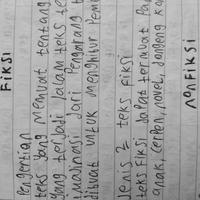 FIKSI
Pengertian
teks yang memuat tentang
yang terjadi dalam teks
imajinasi dari Pengarang
dibuat untuk menghibur
Jenis 2 teks fiksi
teks fiksi dapat termuat
anak, cerpen, novel, dongeng
NONFIKSI